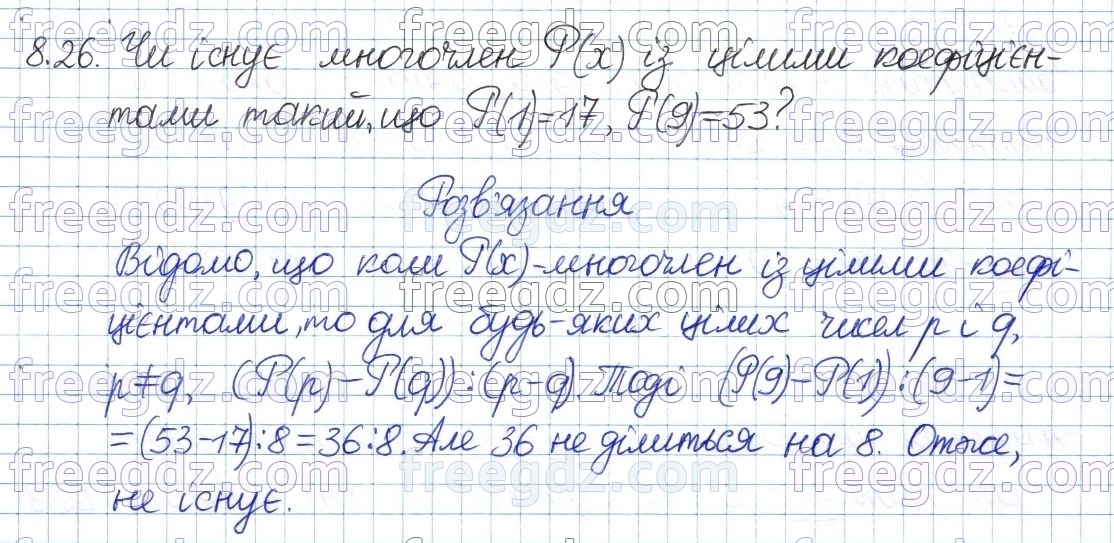 8.26. Чи існує многочлен P(x) із цілими коефіцієн-
тами такий, що P(1)=17, P(9)=53?
Розв'язання
Відомо, що коли P(x)-многочлен із цілими коефі-
цієнтами, то для будь-яких цілих чисел p і q,
p≠q, (P(p)-P(q)):(p-q). Тоді (P(9)-P(1)):(9-1)=
=(53-17):8=36:8. Але 36 не ділиться на 8. Отже,
не існує.
freegdz.com